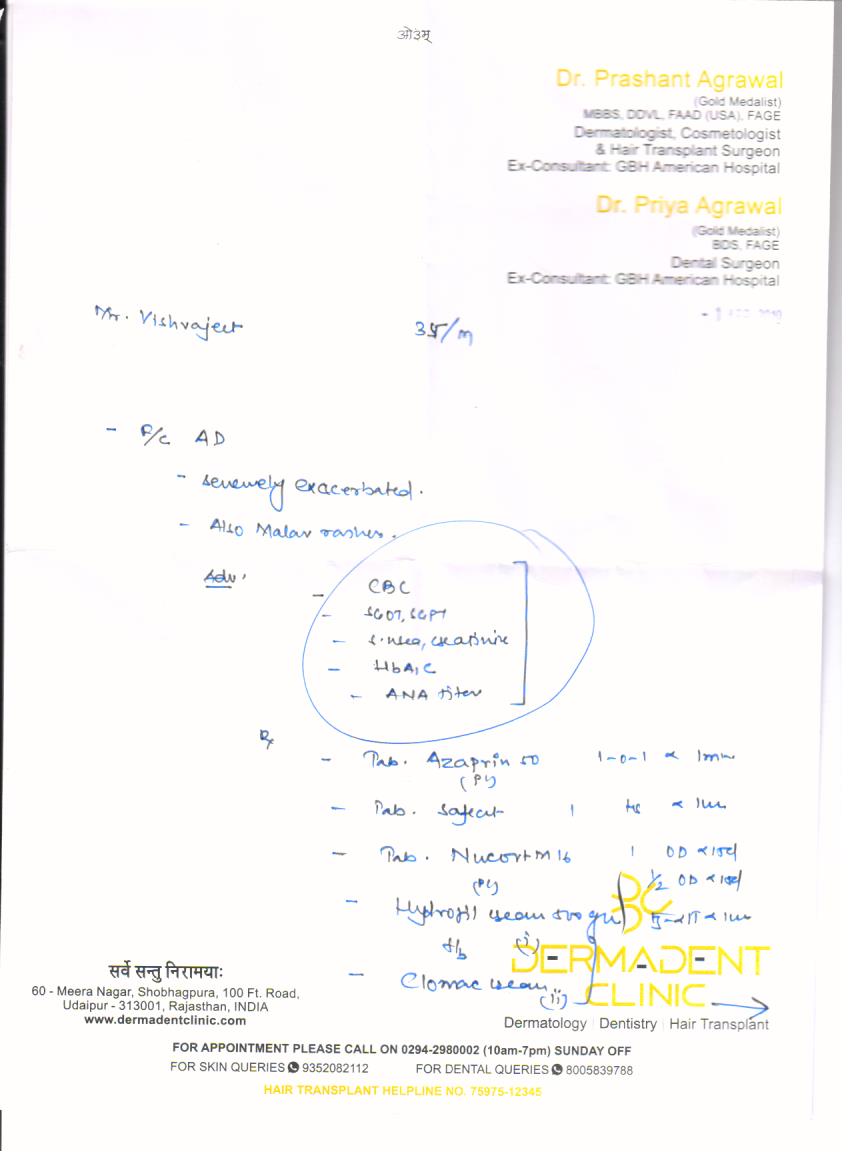 ओ३म्
Dr. Prashant Agrawal
(Gold Medalist)
MBBS, DDVL, FAAD (USA), FAGE
Dermatologist, Cosmetologist
& Hair Transplant Surgeon
Ex-Consultant: GBH American Hospital
Dr. Priya Agrawal
(Gold Medalist)
BDS, FAGE
Dental Surgeon
Ex-Consultant: GBH American Hospital
Mr. Vishvajeet 35/m
- P/c AD
- severely exacerbated.
- Also Malar rashes.
Adv.
- CBC
- SGOT, SGPT
- S. urea, creatinine
- HbA1C
- ANA titer
Rx
- Tab. Azaprin 50 1-0-1 x 1m
- Tab. 1 HS x 1m
- Tab. Nucort M 16 1 OD x 15d
1/2 OD x 15d
- cream 500 gm x 1m
f/b (i)
- Clomac cream (ii)
DC
DERMADENT
CLINIC
Dermatology Dentistry Hair Transplant
सर्वे सन्तु निरामयाः
60 - Meera Nagar, Shobhagpura, 100 Ft. Road,
Udaipur - 313001, Rajasthan, INDIA
www.dermadentclinic.com
FOR APPOINTMENT PLEASE CALL ON 0294-2980002 (10am-7pm) SUNDAY OFF
FOR SKIN QUERIES 9352082112 FOR DENTAL QUERIES 8005839788
HAIR TRANSPLANT HELPLINE NO. 75975-12345